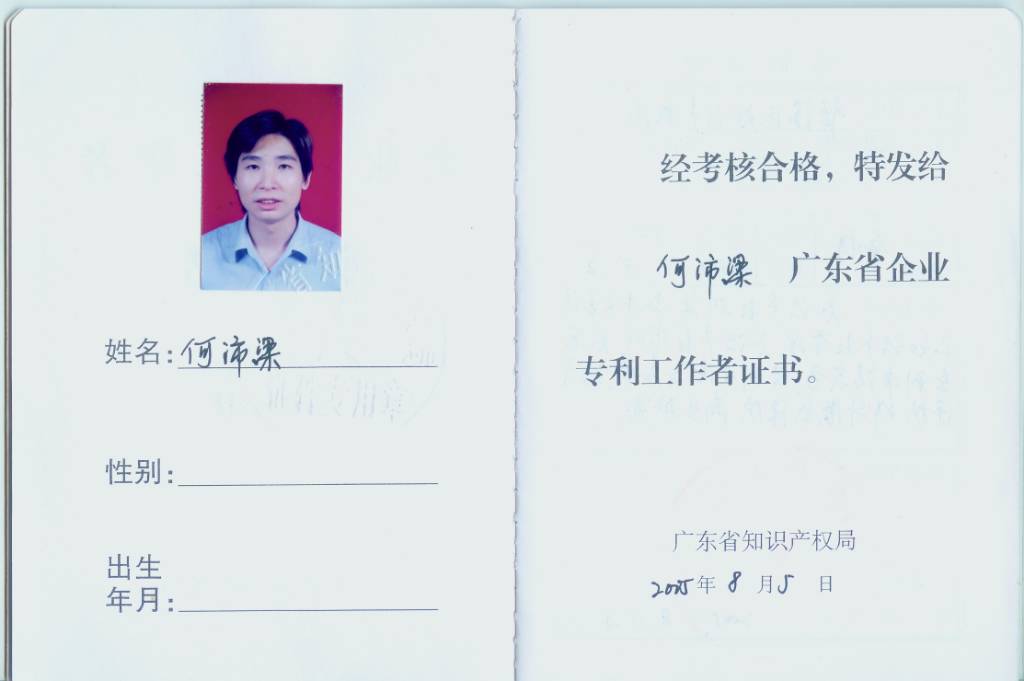 姓名：何沛梁
性别：
出生
年月：
经考核合格，特发给
何沛梁 广东省企业
专利工作者证书。
广东省知识产权局
2005年8月5日